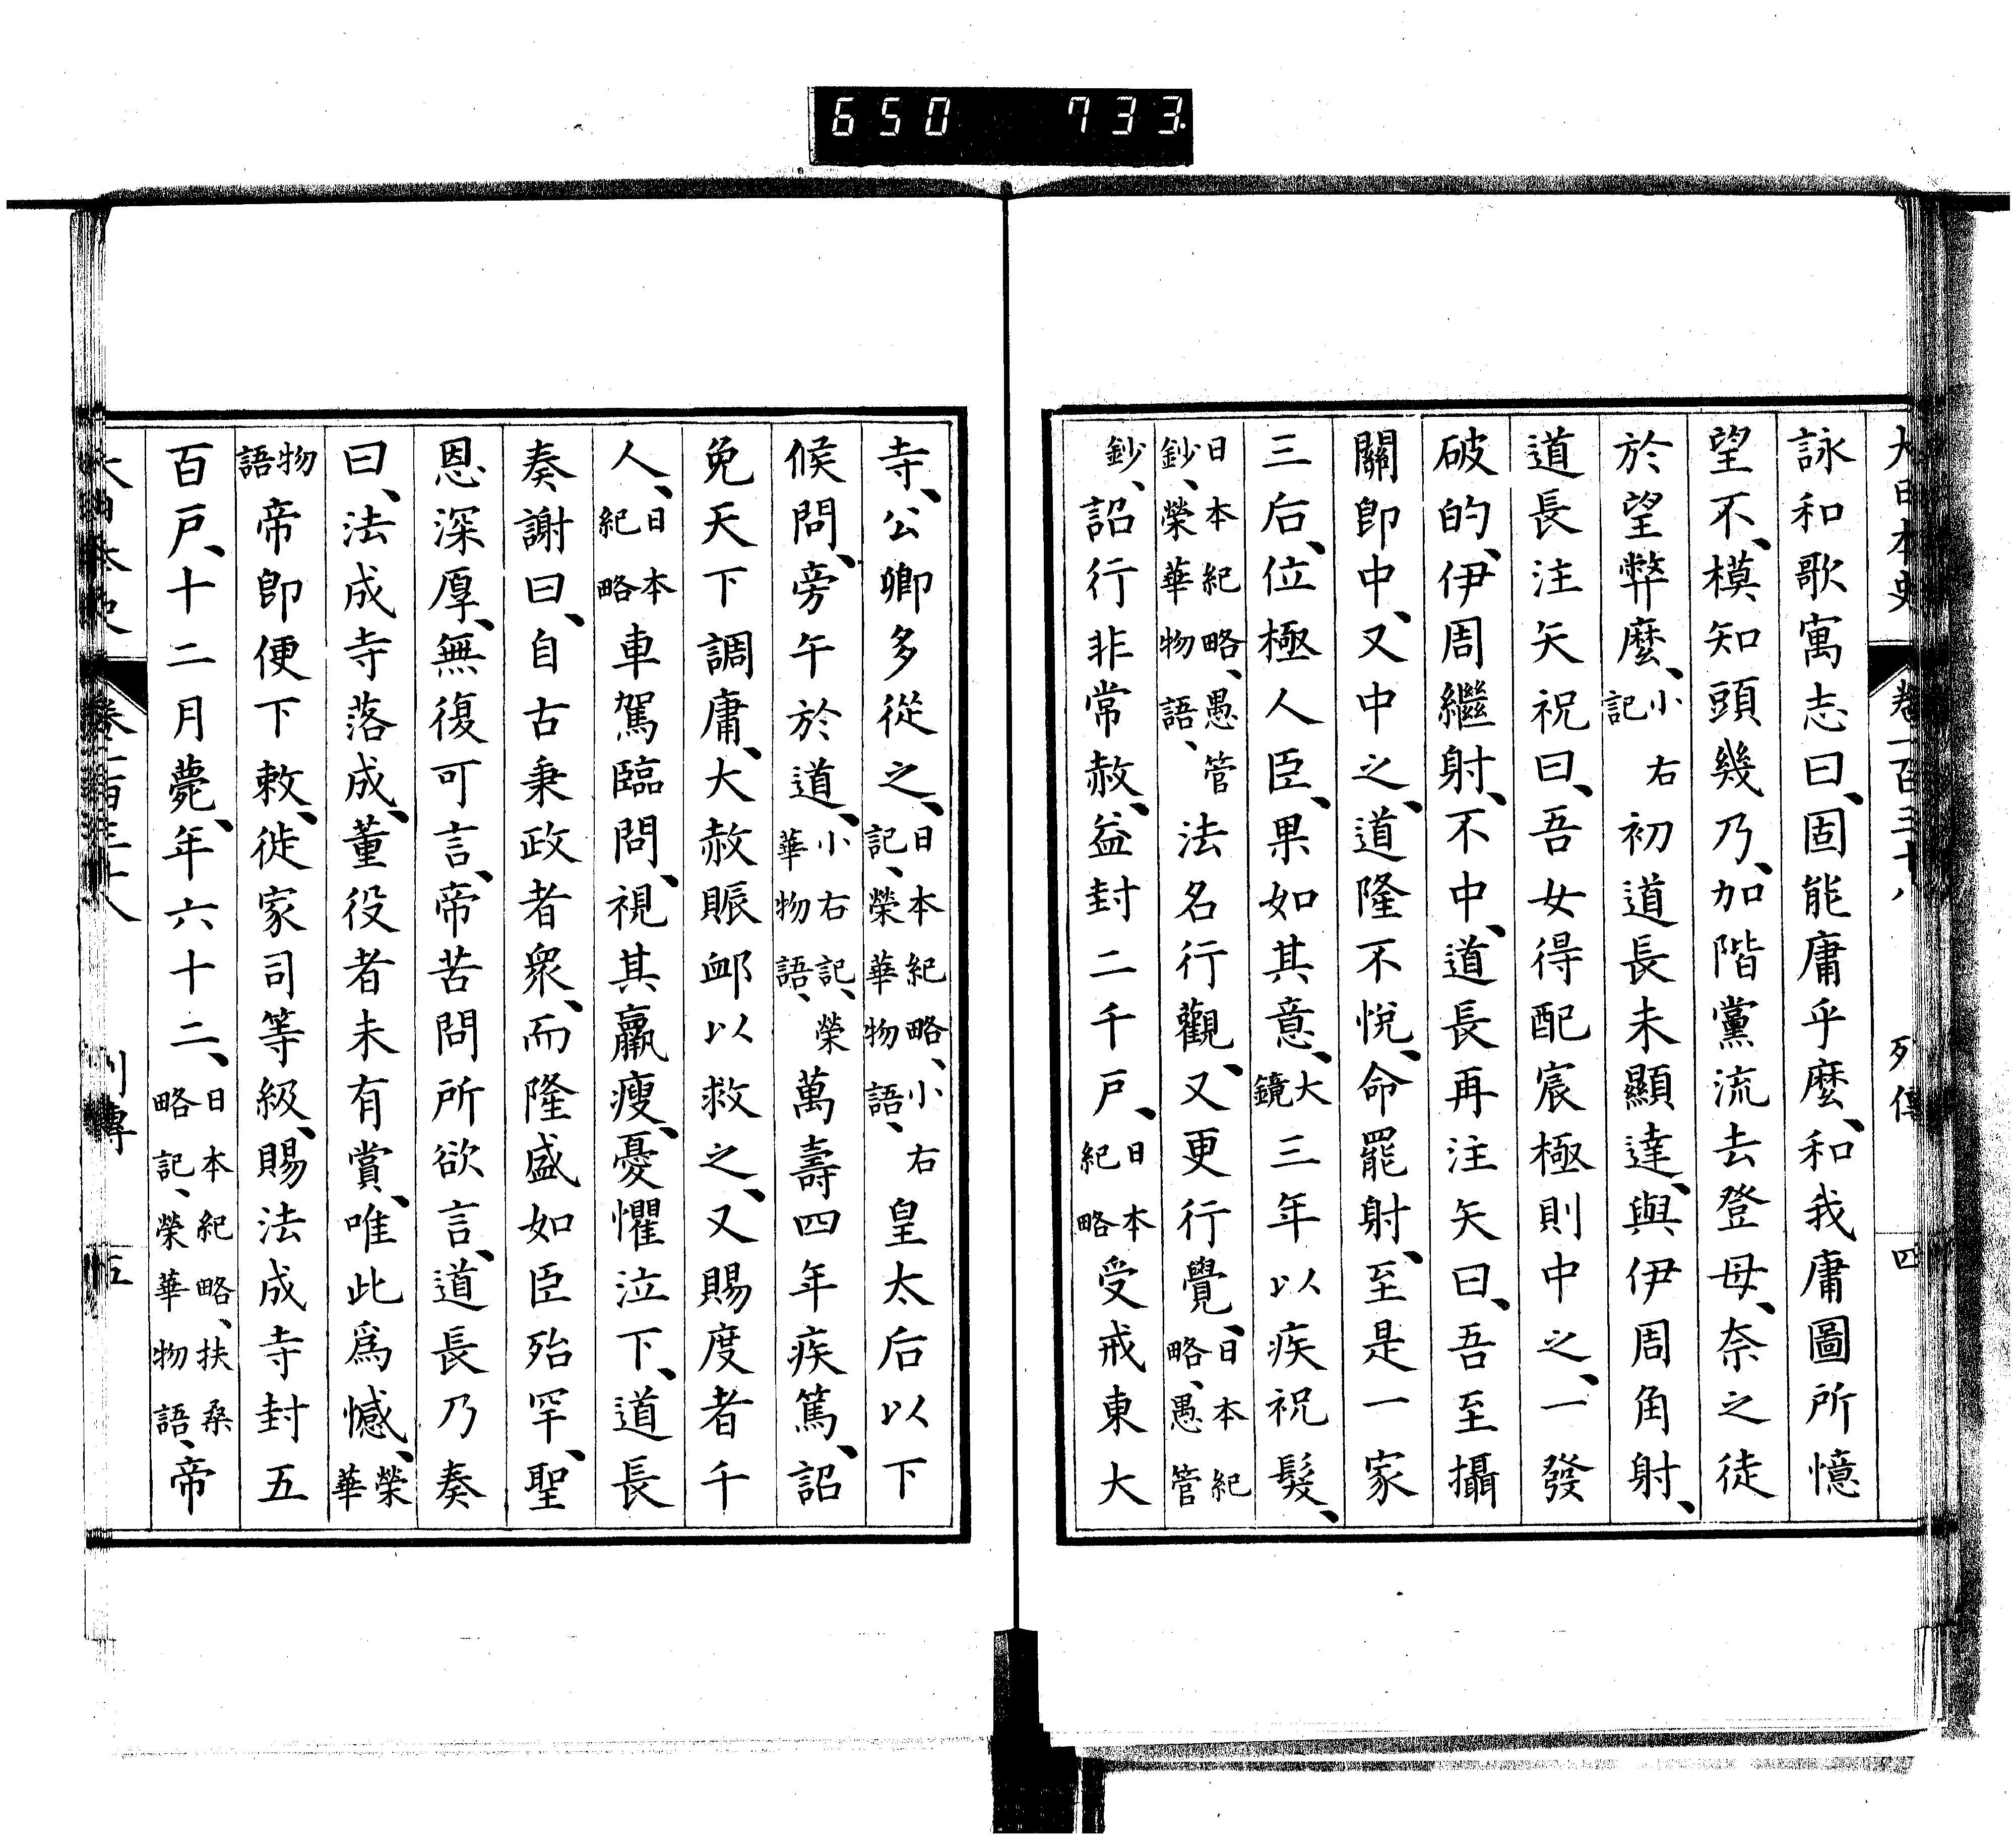 650 733.
大日本史 卷一百三十八 列傳 四
詠和歌寓志曰、固能庸乎麼、和我庸圖所憶
望不、模知頭幾乃、加階黨流去登毋、奈之徒
於望弊麼、小右記初道長未顯達、與伊周角射、
道長注矢祝曰、吾女得配宸極則中之、一發
破的、伊周繼射、不中、道長再注矢曰、吾至攝
關卽中、又中之、道隆不悅、命罷射、至是一家
三后、位極人臣、果如其意、大鏡三年以疾祝髮、
日本紀略、愚管鈔、榮華物語、法名行觀、又更行覺、日本紀略、愚管
鈔、詔行非常赦、益封二千戶、日本紀略受戒東大
寺、公卿多從之、日本紀略、小右記、榮華物語、皇太后以下
候問、旁午於道、小右記、榮華物語、萬壽四年疾篤、詔
免天下調庸、大赦賑卹以救之、又賜度者千
人、日本紀略車駕臨問、視其羸瘦、憂懼泣下、道長
奏謝曰、自古秉政者衆、而隆盛如臣殆罕、聖
恩深厚、無復可言、帝苦問所欲言、道長乃奏
曰、法成寺落成、董役者未有賞、唯此爲憾、榮華
物語帝卽便下敕、徙家司等級、賜法成寺封五
百戶、十二月薨、年六十二、日本紀略、扶桑略記、榮華物語、帝
大日本史 卷一百三十八 列傳 五